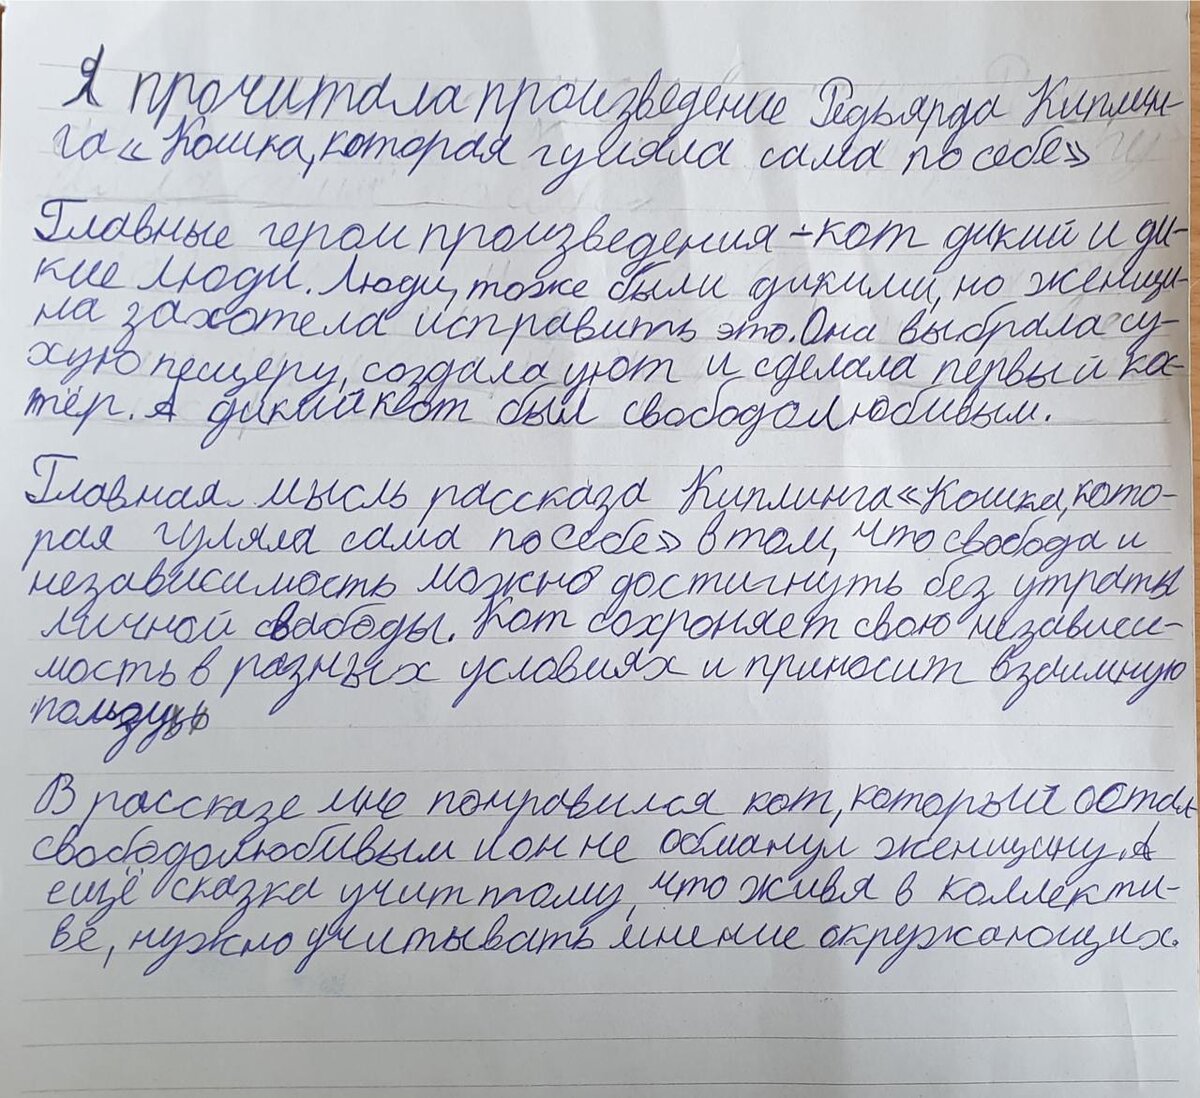 Я прочитала произведение Редьярда Киплин-
га « Кошка, которая гуляла сама по себе»
Главные герои произведения - кот дикий и ди-
кие люди. Люди, тоже были дикими, но женщи-
на захотела исправить это. Она выбрала су-
хую пещеру, создала уют и сделала первый ка-
тёр. А дикий кот был свободолюбивым.
Главная мысль рассказа Киплинга « Кошка, кото-
рая гуляла сама по себе» в том, что свобода и
независимость можно достигнуть без утраты
личной свабоды. Кот сохроняет свою независи-
мость в разных условиях и приносит взаимную
пользу
В рассказе мне понравился кот, который остал
свободолюбивым и он не обманул женщину. А
ещё сказка учит тому, что живя в коллекти-
ве, нужно учитывать мнение окружающих.